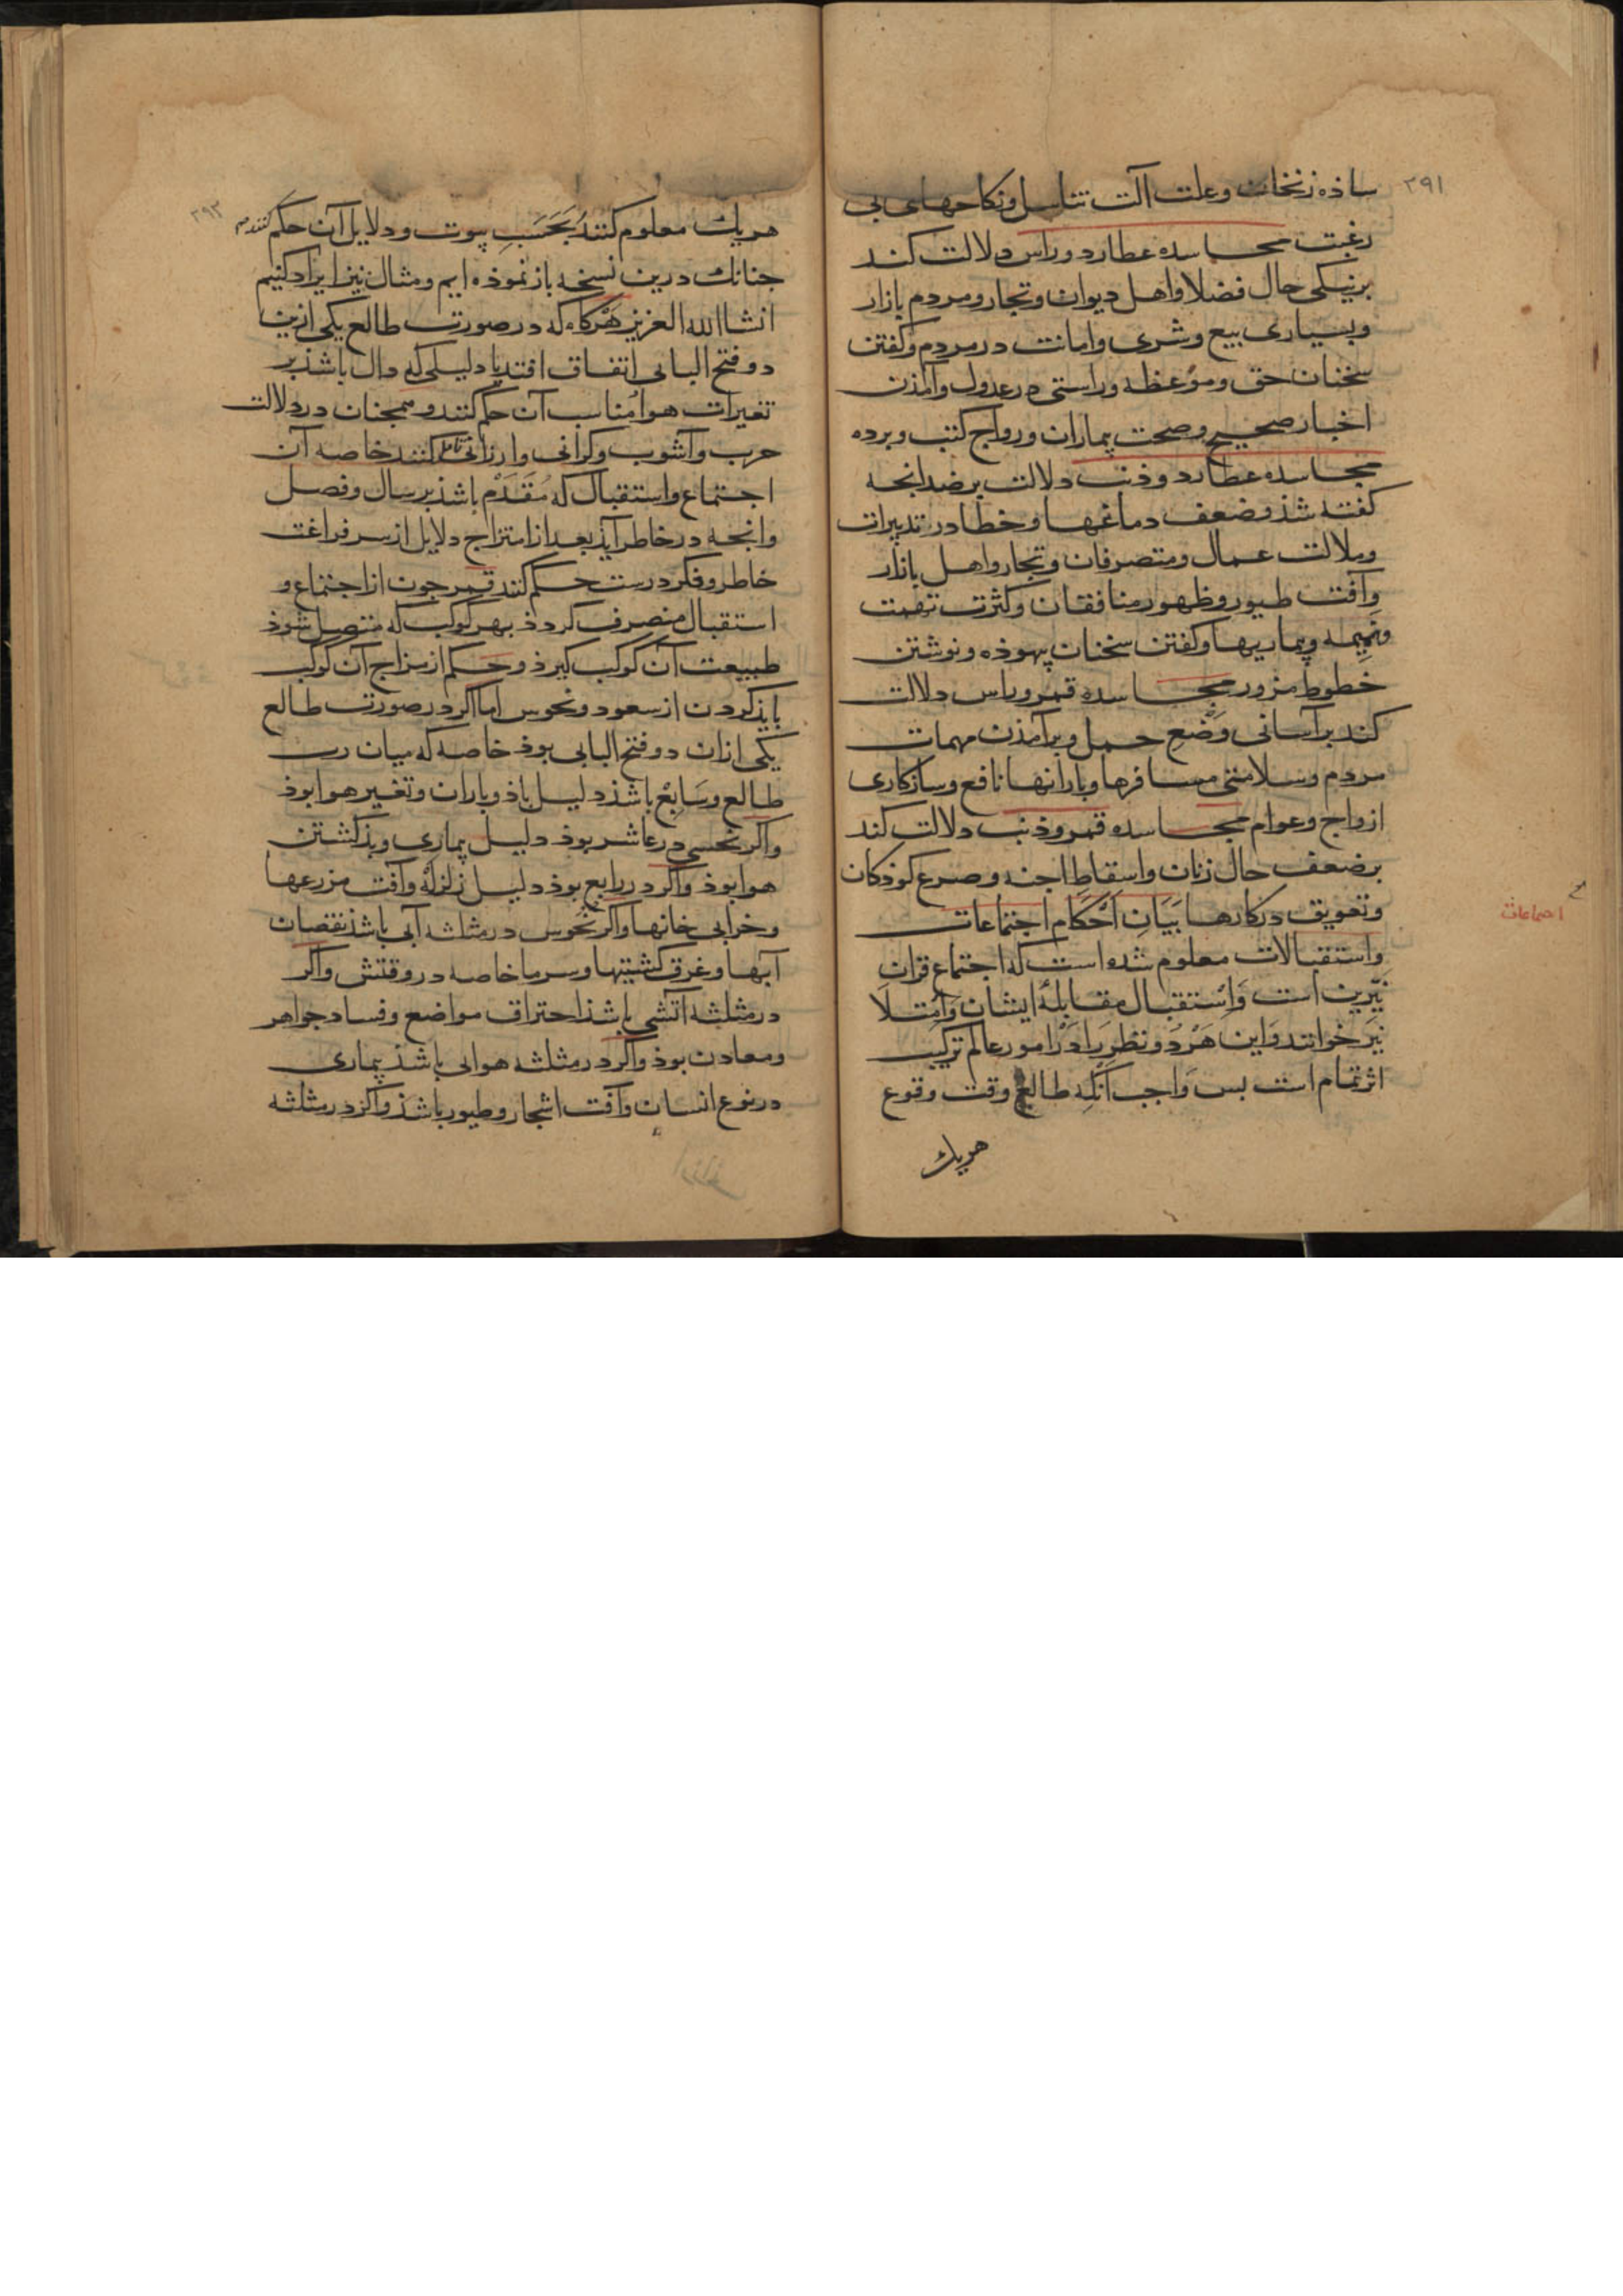 ۲۹۱
ساذه زنخان وعلت آلت تناسل ونکاحهای بی
رغبت مجاسده عطارد وراس دلالت کند
برنیکی حال فضلا واهل دیوان وتجار ومردم بازار
وبسیاری بیع وشری وامانت در مردم وکفتن
سخنان حق وموعظه وراستی در عدول وآمذن
اخبار صحیح وصحت بیماران ورواج کتب وبرده
مجاسده عطارد وذنب دلالت برضد انجه
کفته شذ وضعف دماغها وخطا در تدبیرات
وملالت عمال ومتصرفان وتجار واهل بازار
وآفت طیور وظهور منافقان وکثرت تهمت
ونمیمه وبیماریها وکفتن سخنان بیهوذه ونوشتن
خطوط مزور مجاسده قمر وراس دلالت
کند برآسانی وضع حمل وبرآمذن مهمات
مردم وسلامتی مسافرها وبارانها نافع وسازکاری
ازواج وعوام مجاسده قمر وذنب دلالت کند
برضعف حال زنان واسقاط اجنه وصرع کوذکان
وتعویق در کارها بَیَانِ اَحْکَام اجتماعات
واستقبالات معلوم شده است که اجتماع قران
نیّرین است وَاستقبال مقابلهٔ ایشان وَامتلا
نیز خوانند وَاین هَردُو نظر رَا دَر امور عالم ترکیب
اثر تمام است بس وَاجب آنکه طالع وقت وقوع
هریك
اجتماعات
۲۹۲
هریك معلوم کنند بحَسَبِ بیوت ودلایل آن حکم کنند
جنانك درین نسخه باز نموذه ایم ومثال نیز ایراد کنیم
انشاالله العزیز هرکاه که در صورت طالع یکی ازین
دو فتح البابی اتفاق افتد یا دلیلی که دال باشذ بر
تغیرات هوا مُناسب آن حکم کنند وهمجنان در دلالت
حرب وآشوب وکرانی وارزانی کنند خاصه آن
اجتماع واستقبال که مُقدّم باشذ بر سال وفصل
وانجه در خاطر آیذ بعد از امتزاج دلایل از سر فراغت
خاطر وفکر درست حکم کنند قمر جون از اجتماع و
استقبال منصرف کردذ بهر کوکب که متصل شوذ
طبیعت آن کوکب کیرذ وحکم از مزاج آن کوکب
بایذ کردن از سعود ونحوس اما اکر در صورت طالع
یکی ازان دو فتح البابی بوذ خاصه که میان رب
طالع وسَابع باشذ دلیل باذ وباران وتغیر هوا بوذ
واکر نحسی در عاشر بوذ دلیل بیماری وبذ کشتن
هوا بوذ واکر در رابع بوذ دلیل زلزله وآفت مزرعها
وخرابی خانها واکر نحوس در مثلثه آبی باشذ نقصان
آبها وغرق کشتیها وسرما خاصه در وقتش واکر
در مثلثه آتشی باشذ احتراق مواضع وفساد جواهر
ومعادن بوذ واکر در مثلثه هوایی باشذ بیماری
در نوع انسان وآفت اشجار وطیور باشذ واکر در مثلثه